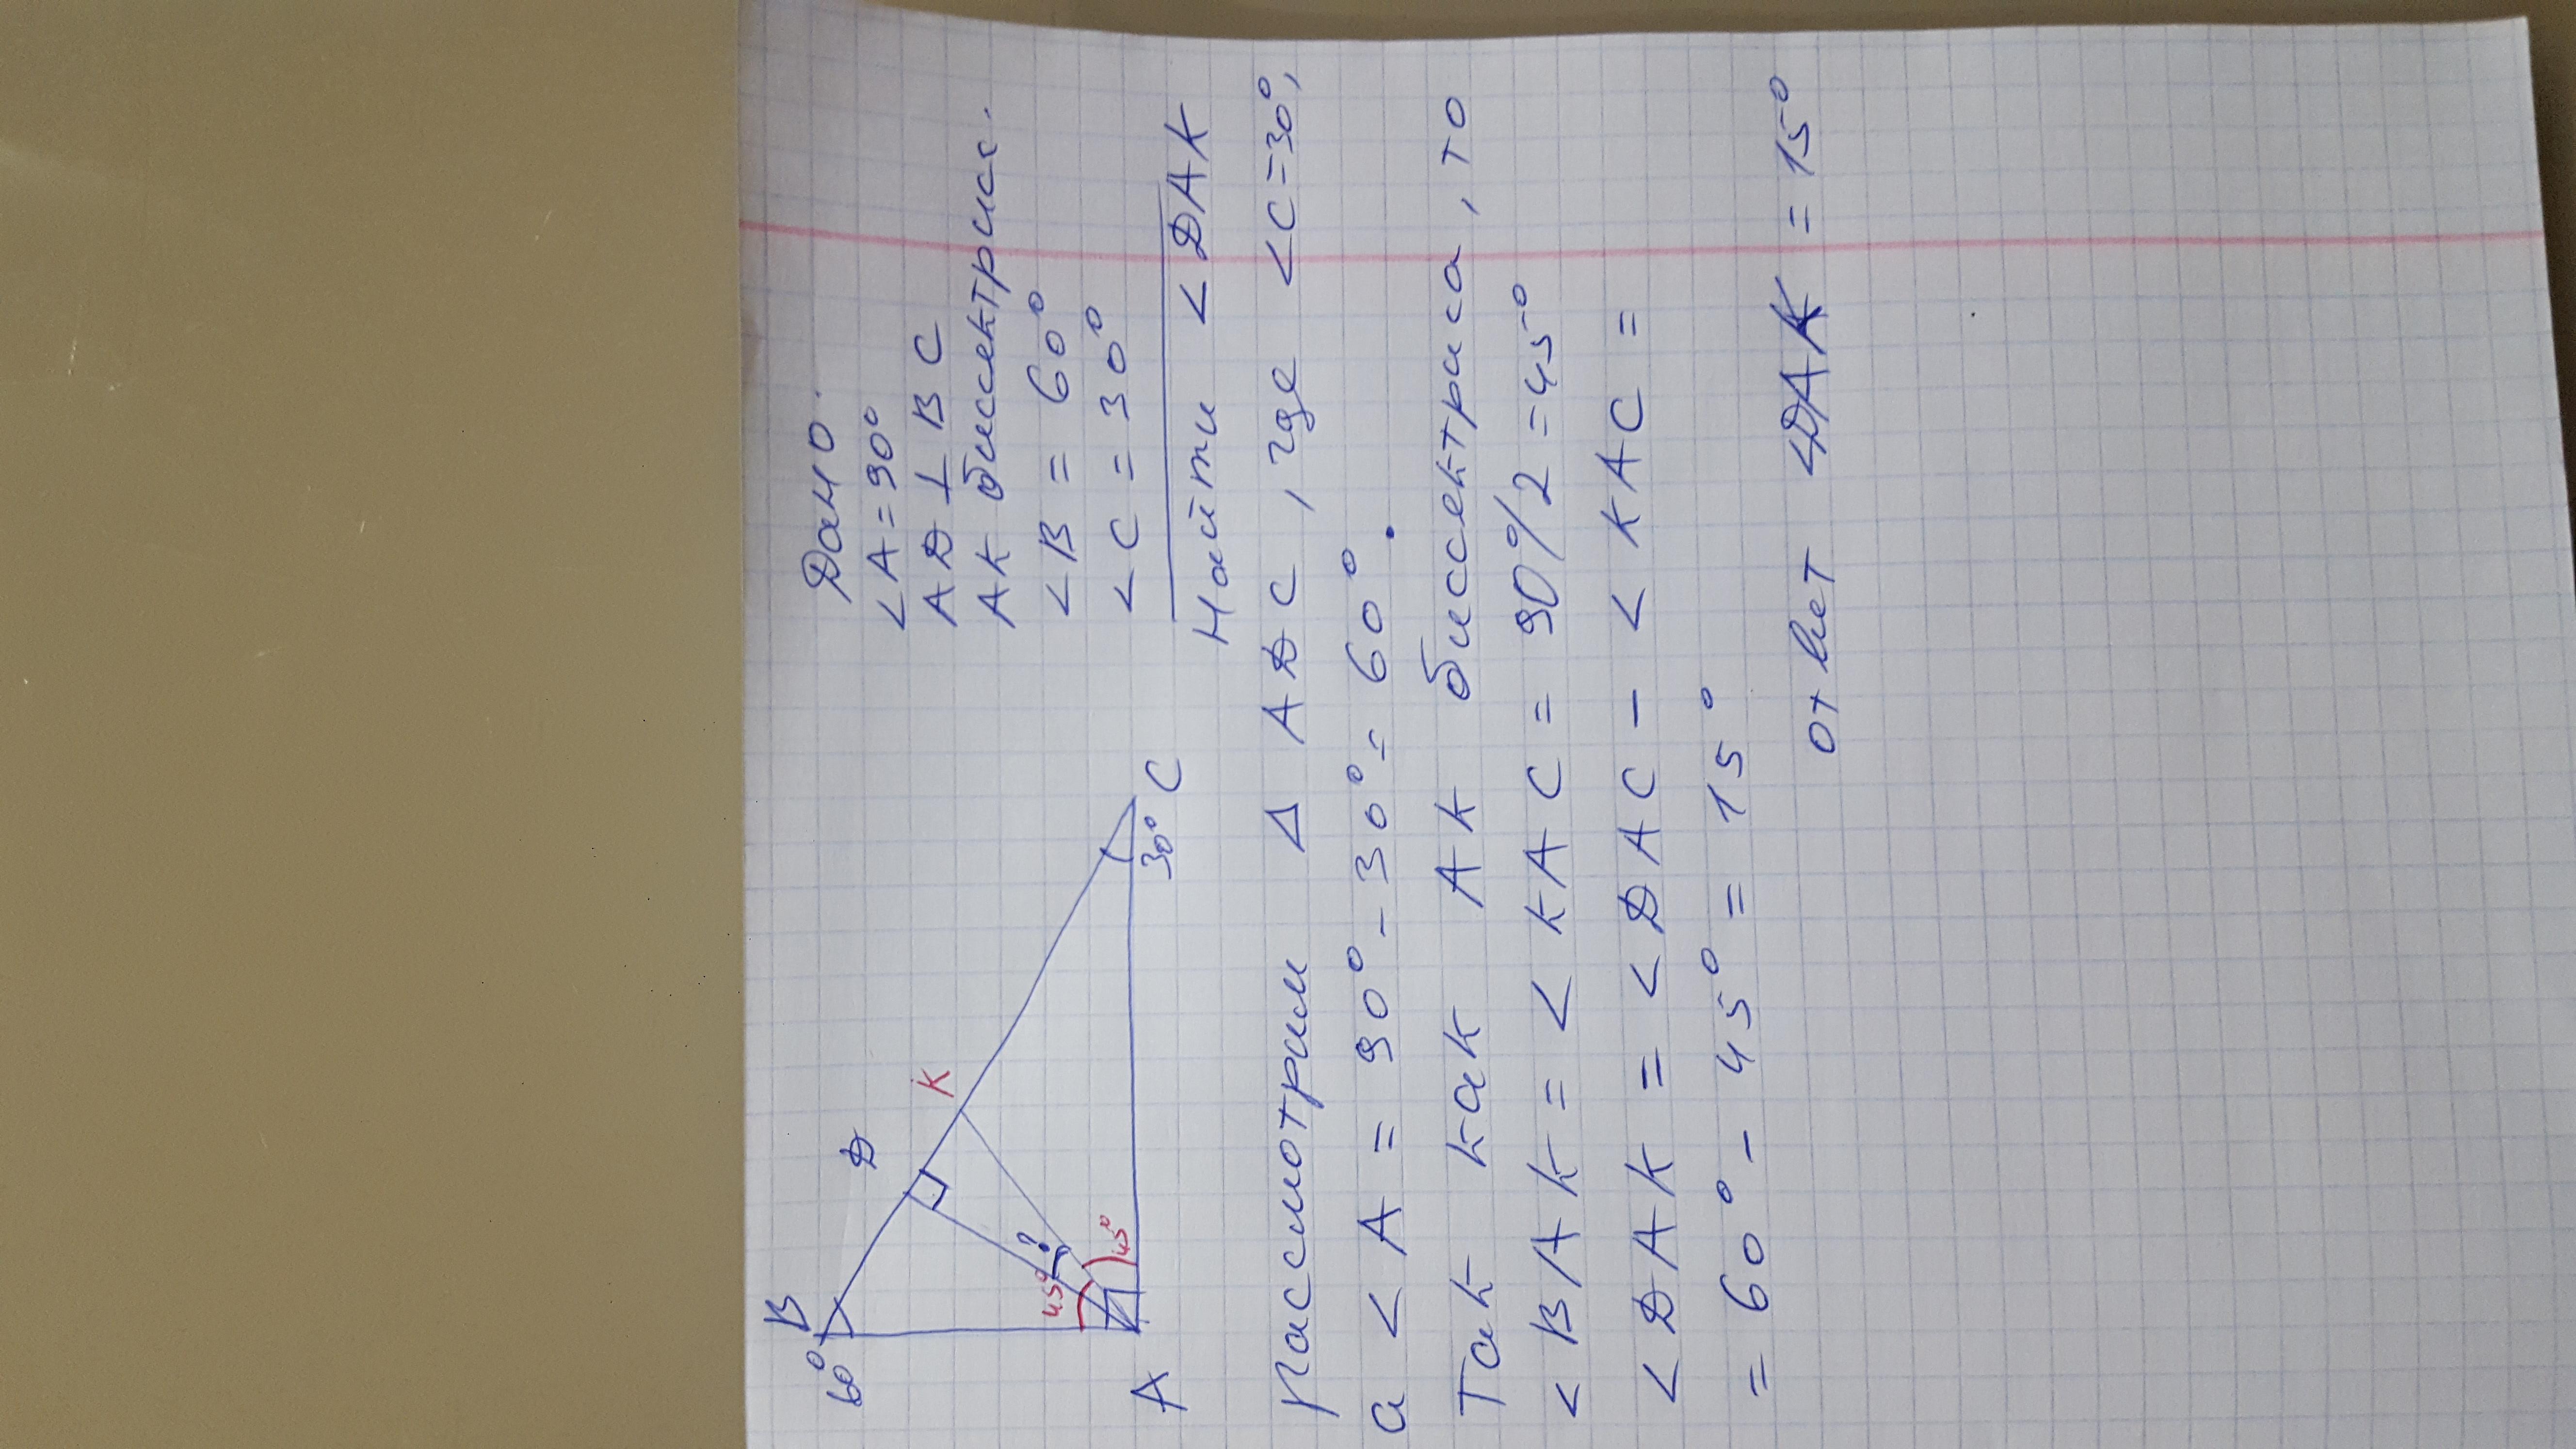 B
60°
D
K
45°
?
45°
A
30°
C
Дано.
<A=90°
AD⊥BC
AK биссектрисс.
<B = 60°
<C = 30°
Найти <DAK
рассмотрим Δ ADC, где <C=30°,
а <A = 90°-30°=60°.
Так как AK биссектриса, то
<BAK=<KAC=90°/2=45°
<DAK = <DAC - <KAC =
= 60° - 45° = 15°
ответ <DAK = 15°